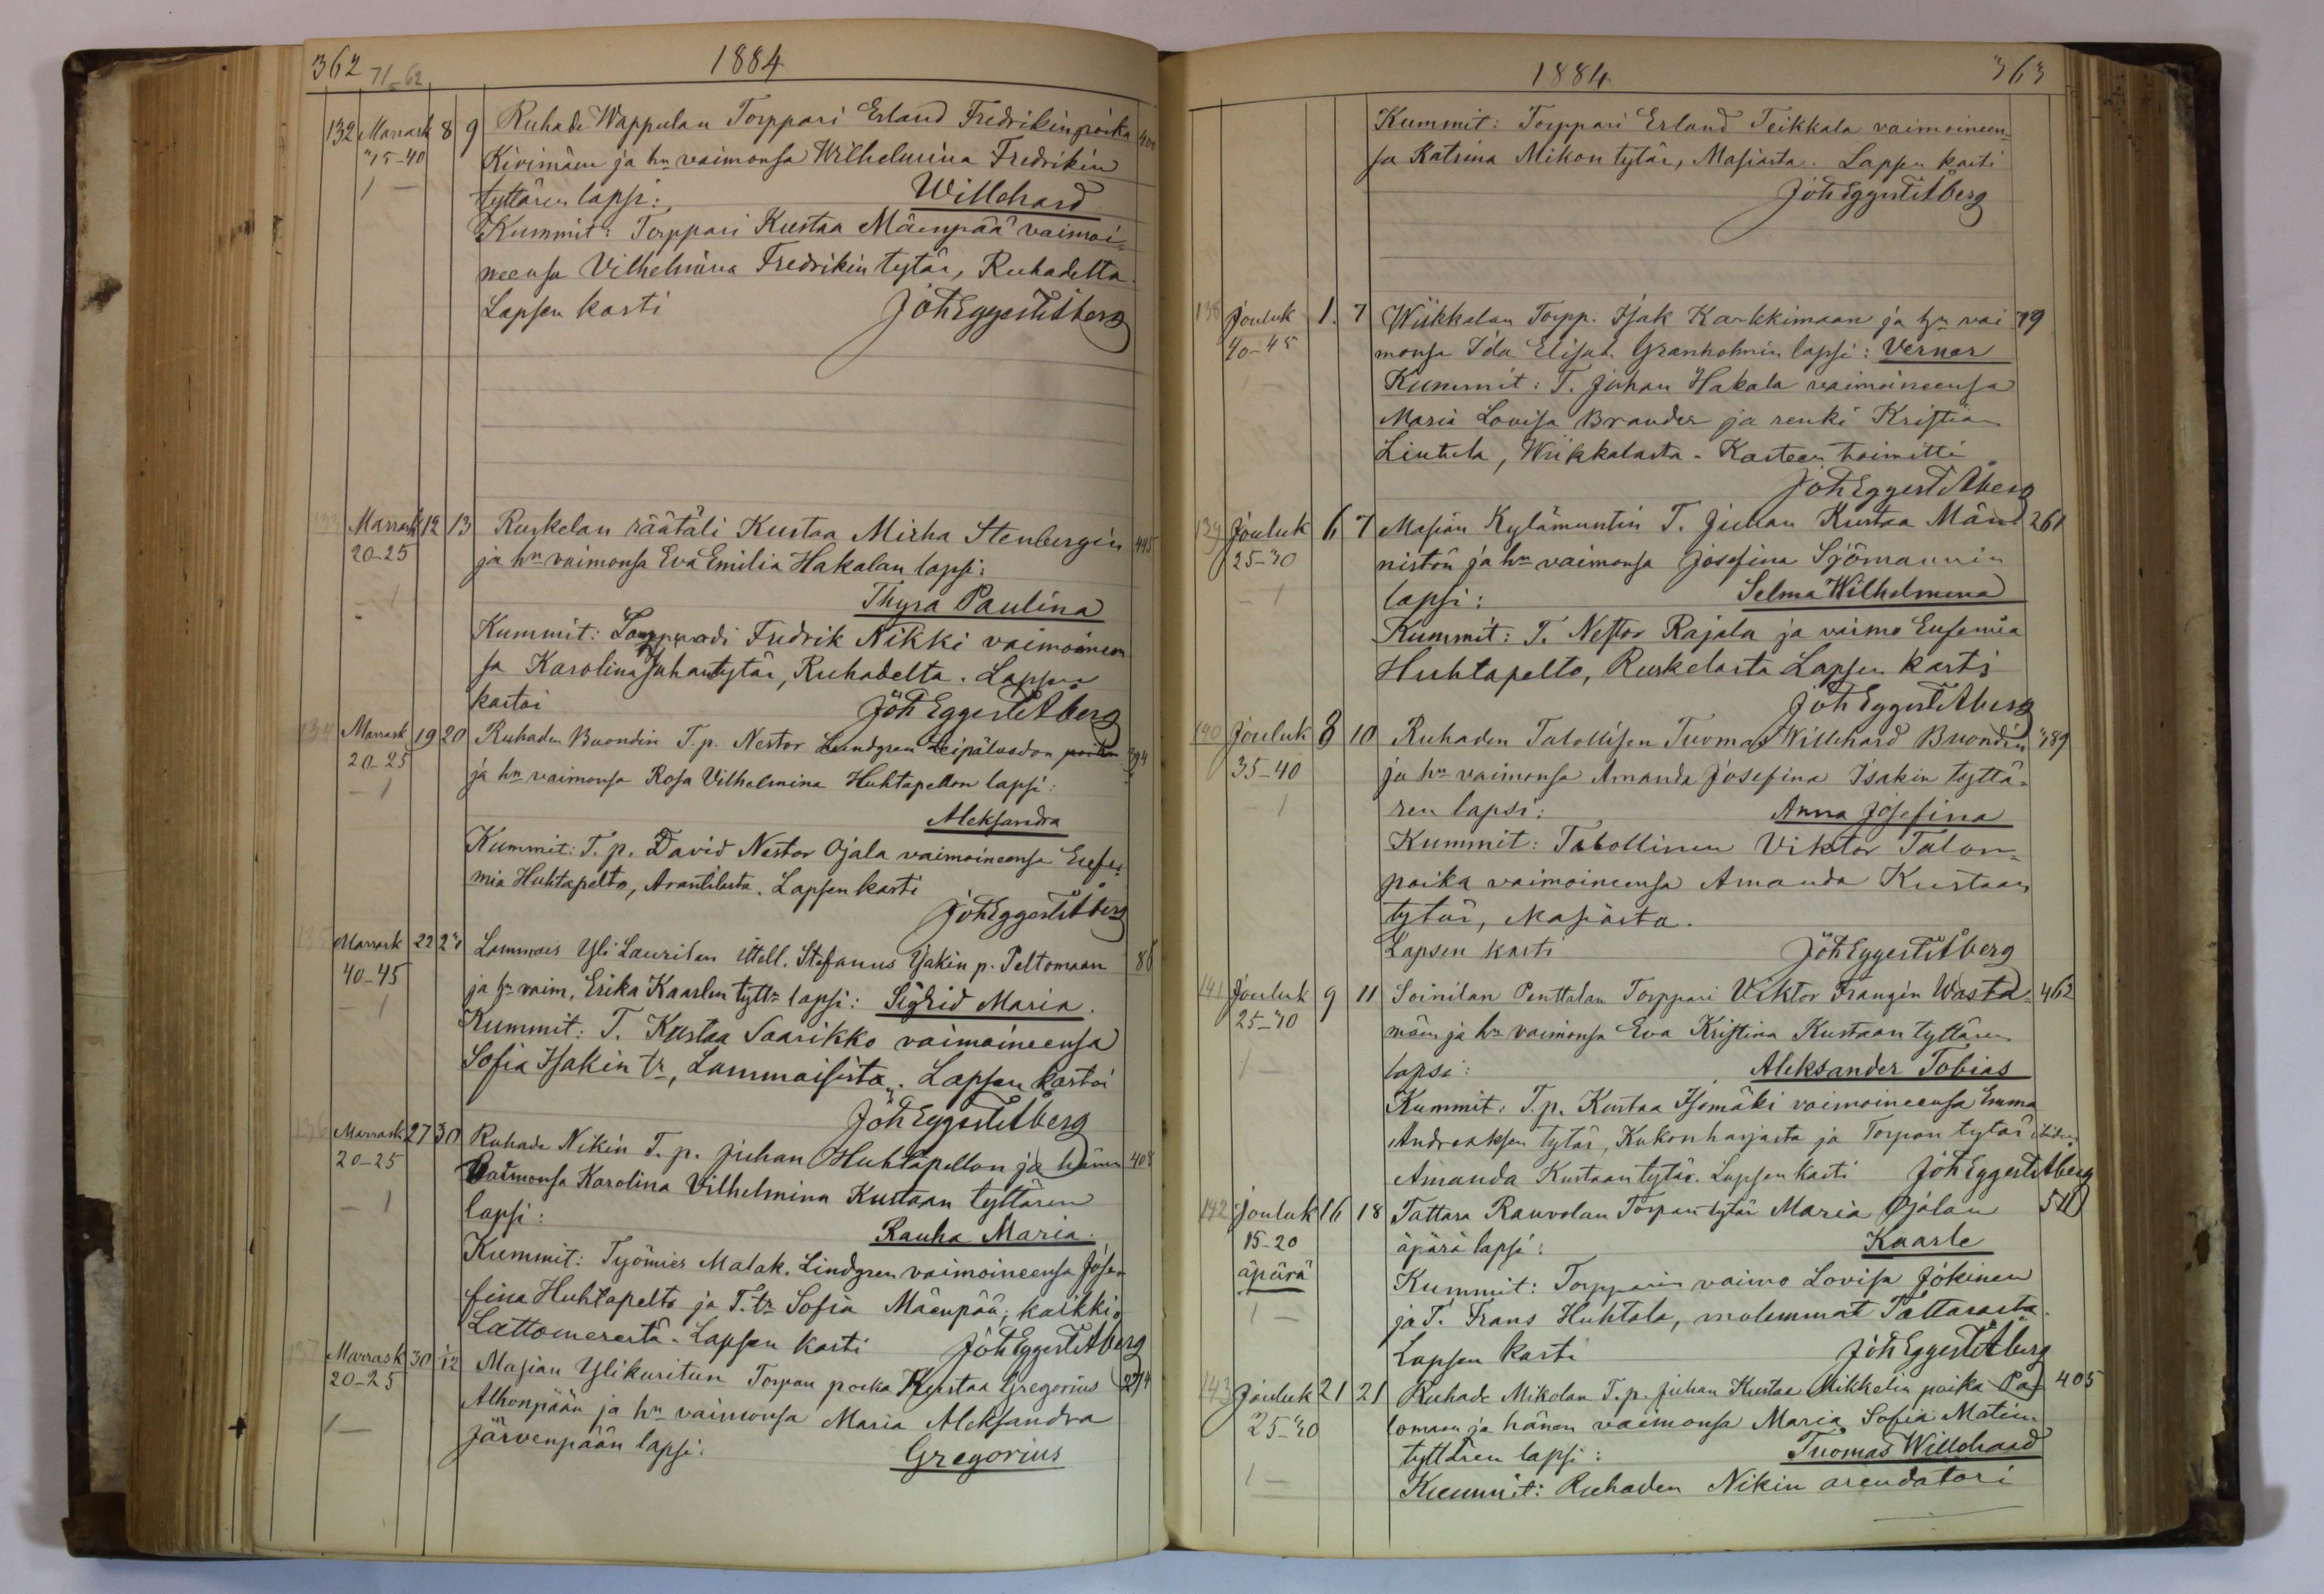 362 71-62
1884
132 Marrask 8 9 Ruhade Wappulan Torppari Erland Fredrikinpoika 400
35-40 Kivimäen ja hn vaimonsa Wilhelmina Fredrikin
1 – tyttären lapsi: Willehard
Kummit: Torppari Kustaa Mäenpää vaimoi-
neensa Vilhelmina Fredrikin tytär, Ruhadelta.
Lapsen kasti Joh Eggert Åberg
133 Marrask 12 13 Ruskelan räätäli Kustaa Miska Stenbergin 445
20-25 ja hn vaimonsa Eva Emilia Hakalan lapsi:
– 1 Thyra Paulina
Kummit: Fredrik Nikki vaimoineen
sa Karolina Juhantytär, Ruhadelta. Lapsen
kastoi Joh Eggert Åberg
134 Marrask 19 20 Ruhaden Buondin T.p. Nestor Lundgren Leipälusdon poikan 394
20-25 ja hn vaimonsa Rosa Vilhelmina Huhtapellon lapsi:
– 1 Aleksandra
Kummit: T. p. David Nestor Ojala vaimoineensa Eufe-
mia Huhtapelto, Arantilasta. Lapsen kasti
Joh Eggert Åberg
135 Marrask 22 23 Lammais Yli Laurilan itsell. Stefanus Isakin p. Peltomaan 86
40-45 ja hn vaim. Erika Kaarlen tyttr lapsi: Sigrid Maria.
– 1 Kummit: T. Kustaa Saarikko vaimoineensa
Sofia Isakin tr, Lammaisista. Lapsen kastoi
Joh Eggert Åberg
136 Marrask 27 30 Ruhade Nikin T. p. Juhan Huhtapellon ja hänen 408
20-25 Vaimonsa Karolina Vilhelmina Kustaan tyttären
– 1 lapsi: Rauha Maria.
Kummit: Työmies Malak. Lindgren vaimoineensa Jose-
fina Huhtapelto ja T. tr Sofia Mäenpää; kaikki
Lattomerestä. Lapsen kasti Joh Eggert Åberg
137 Marrask 30 1/12 Masian Ylikuritun Torpan poika Kustaa Gregorius 274
20-25 Alhonpään ja hn vaimonsa Maria Aleksandra
1 – Järvenpään lapsi: Gregorius
1884
363
Kummit: Torppari Erland Teikkala vaimoineen-
sa Katrina Mikon tytär, Masiasta. Lapsen kasti
Joh Eggert Åberg
138 Jouluk 1. 7 Wiikkalan Torpp. Isak Karkkimaan ja hn vai 79
40-45 monsa Ida Elisab. Granholmin lapsi: Verner
Kummit: T. Juhan Hakala vaimoineensa
Maria Lovisa Brander ja renki Kristian
Lintula, Wiikkalasta. Kasteen toimitti
Joh Eggert Åberg
139 Jouluk 6 7 Masian Kylämuntin T. Juhan Kustaa Män- 261
25-30 nistön ja hn vaimonsa Josefina Sjömannin
– 1 lapsi: Selma Wilhelmina
Kummit: T. Nestor Rajala ja vaimo Eufemia
Huhtapelto, Ruskelasta Lapsen kasti
Joh Eggert Åberg
140 Jouluk 8 10 Ruhaden Talollisen Tuomas Willehard Buondin 389
35-40 ja hn vaimonsa Amanda Josefina Isakin tyttä-
– 1 ren lapsi: Anna Josefina
Kummit: Talollinen Viktor Talon-
poika vaimoineensa Amanda Kustaan
tytär, Masiasta.
Lapsen kasti Joh Eggert Åberg
141 Jouluk 9 11 Soinilan Penttalan Torppari Viktor Frangin Wasta- 462
25-30 mäen ja hn vaimonsa Eva Kristina Kustaan tyttären
1 – lapsi: Aleksander Tobias
Kummit: T.p. Kustaa Isomäki vaimoineensa Emma
Andreaksen tytär, Kukonharjasta ja Torpan tytär ibidem
Amanda Kustaantytär. Lapsen kasti Joh Eggert Åberg
142 Jouluk 16 18 Tattara Rauvolan Torpantytär Maria Ojalan 511
15-20 äpärä lapsi: Kaarle
äpärä Kummit: Torpparin vaimo Lovisa Jokinen
1 – ja T. Frans Huhtala, molemmat Tattarasta.
Lapsen kasti Joh Eggert Åberg
143 Jouluk 21 21 Ruhade Mikolan T.p. Juhan Kustaa Mikkelin poika Pa- 405
25-30 lomaan ja hänen vaimonsa Maria Sofia Matin
1 – tyttären lapsi: Tuomas Willehard
Kummit: Ruhaden Nikin arendatori